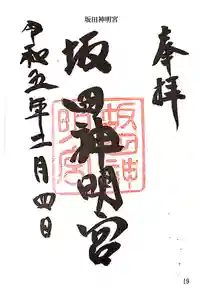 坂田神明宮
奉拝
坂田神明宮
坂田神明宮
令和五年二月四日
19